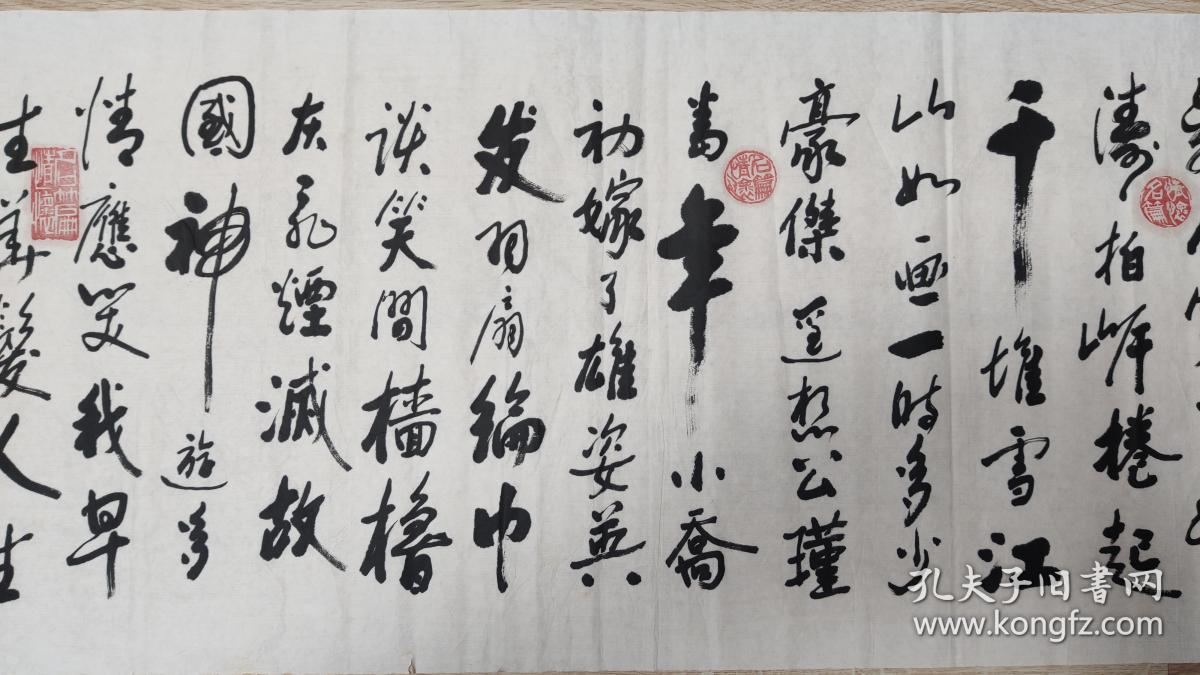 濤拍岸捲起
千堆雪江
山如画一時多少
豪傑遥想公瑾
當年小喬
初嫁了雄姿英
发羽扇綸巾
談笑間檣櫓
灰飛煙滅故
國神遊多
情應笑我早
生華髮人生
孔夫子旧书网
www.kongfz.com